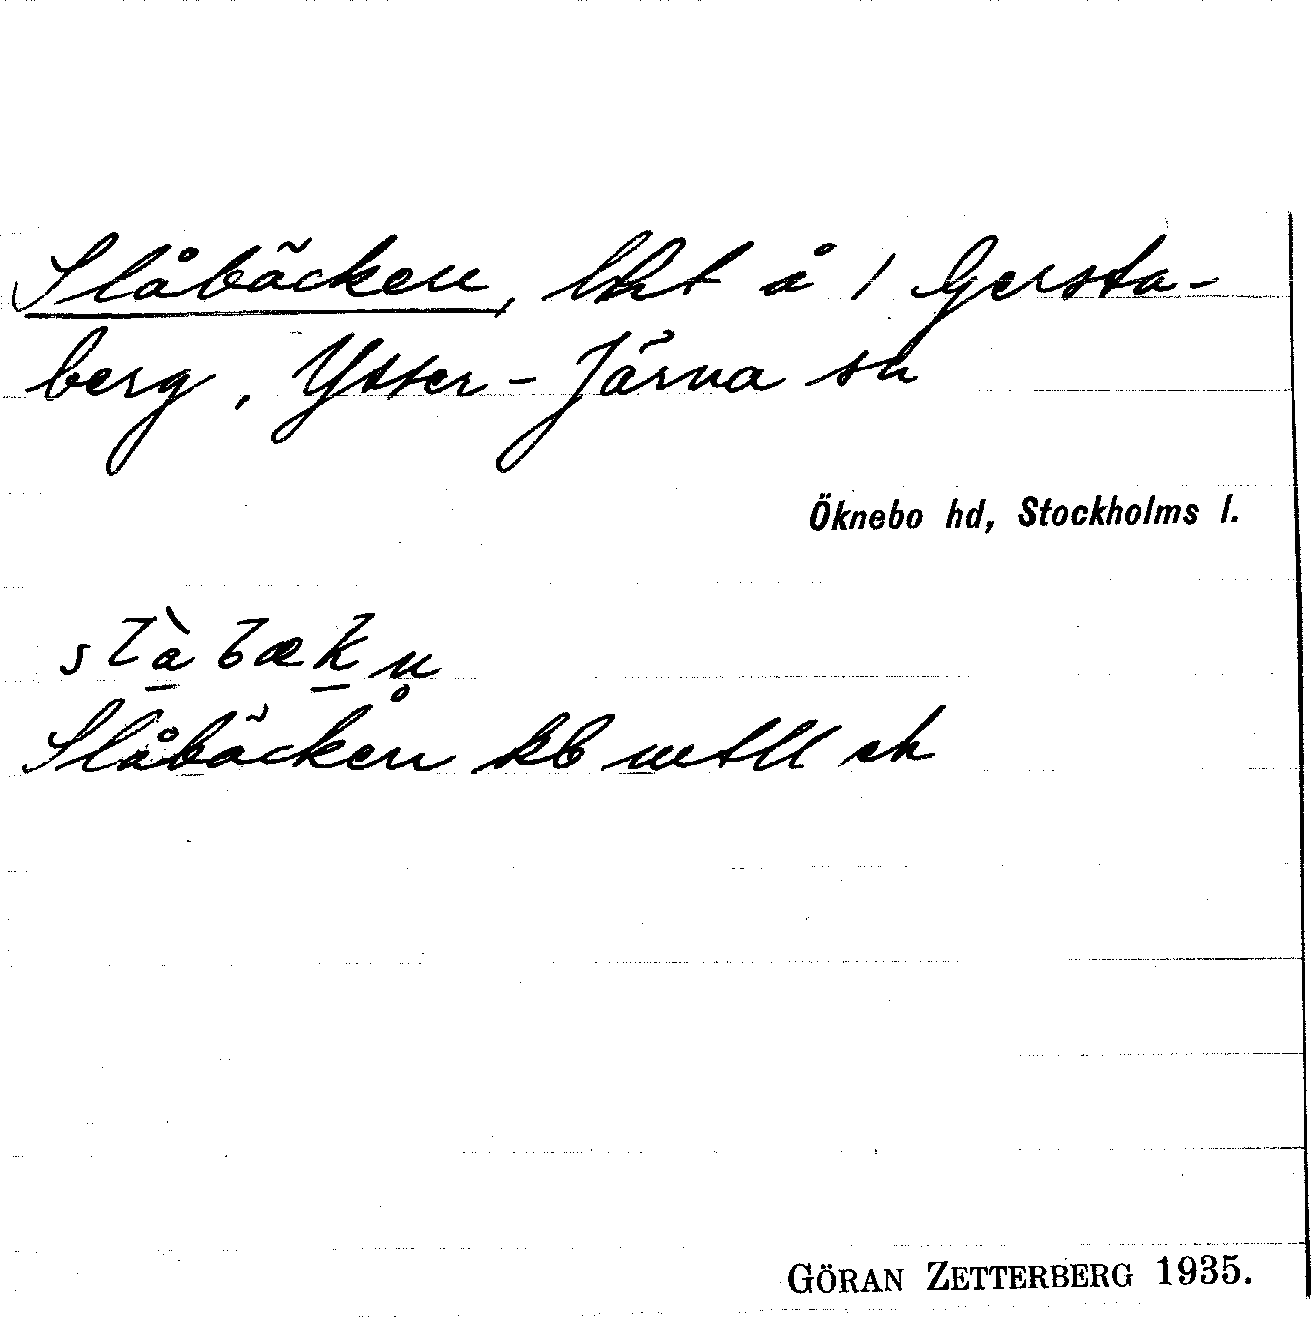 Slåbäcken, lht å 1 Gersta-
berg, Ytter-Järna sn
Öknebo hd, Stockholms l.
Slåbäcken kb
GÖRAN ZETTERBERG 1935.